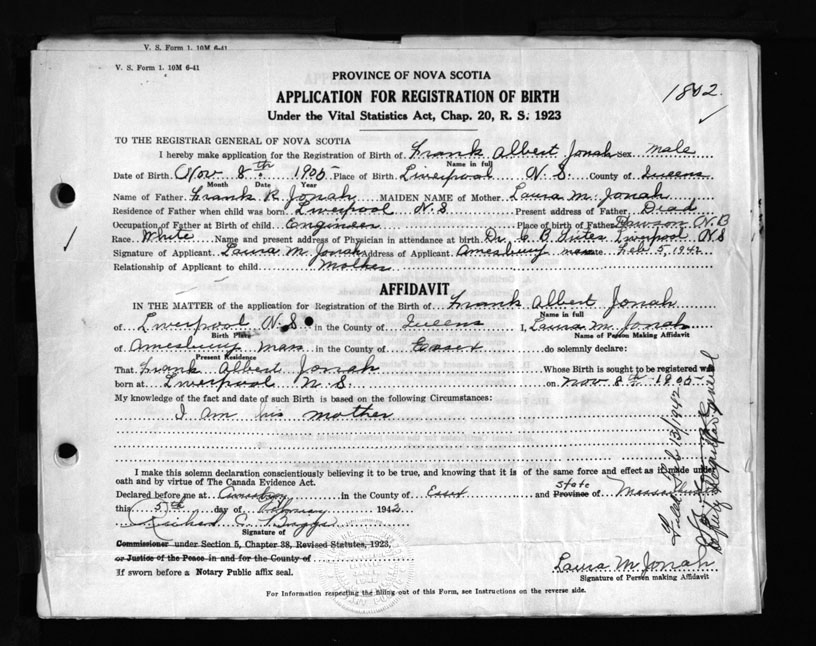 V. S. Form 1. 10M 6-41
V. S. Form 1. 10M 6-41
PROVINCE OF NOVA SCOTIA
APPLICATION FOR REGISTRATION OF BIRTH
1802
Under the Vital Statistics Act, Chap. 20, R. S. 1923
TO THE REGISTRAR GENERAL OF NOVA SCOTIA
I hereby make application for the Registration of Birth of Frank Albert Jonah sex male
Name in full
Date of Birth Nov 8th 1905 Place of Birth Liverpool N. S. County of Queens
Month Date Year
Name of Father Frank R. Jonah MAIDEN NAME of Mother Laura M. Jonah
Residence of Father when child was born Liverpool N. S. Present address of Father Dead
Occupation of Father at Birth of child Engineer Place of birth of Father Dawson N.B
Race White Name and present address of Physician in attendance at birth Dr. C B Liverpool N S
Signature of Applicant Laura M Jonah Address of Applicant Amesbury mass Feb 5, 1942
Relationship of Applicant to child Mother
AFFIDAVIT
IN THE MATTER of the application for Registration of the Birth of Frank Albert Jonah
Name in full
of Liverpool N. S. in the County of Queens I, Laura M. Jonah
Birth Place Name of Person Making Affidavit
of Amesbury Mass in the County of Essex do solemnly declare:
Present Residence
That Frank Albert Jonah Whose Birth is sought to be registered was
born at Liverpool N. S. on Nov 8th 1905
My knowledge of the fact and date of such Birth is based on the following Circumstances:
I am his mother
I make this solemn declaration conscientiously believing it to be true, and knowing that it is of the same force and effect as if made under
oath and by virtue of The Canada Evidence Act.
Declared before me at Amesbury in the County of Essex and Province of state
this 5th day of February 1942
Signature of
Commissioner under Section 5, Chapter 38, Revised Statutes, 1923,
or Justice of the Peace in and for the County of
If sworn before a Notary Public affix seal.
Laura M Jonah
Signature of Person making Affidavit
For Information respecting the filling out of this Form, see Instructions on the reverse side.
Filed Feb 13/1942
Deputy Registrar General